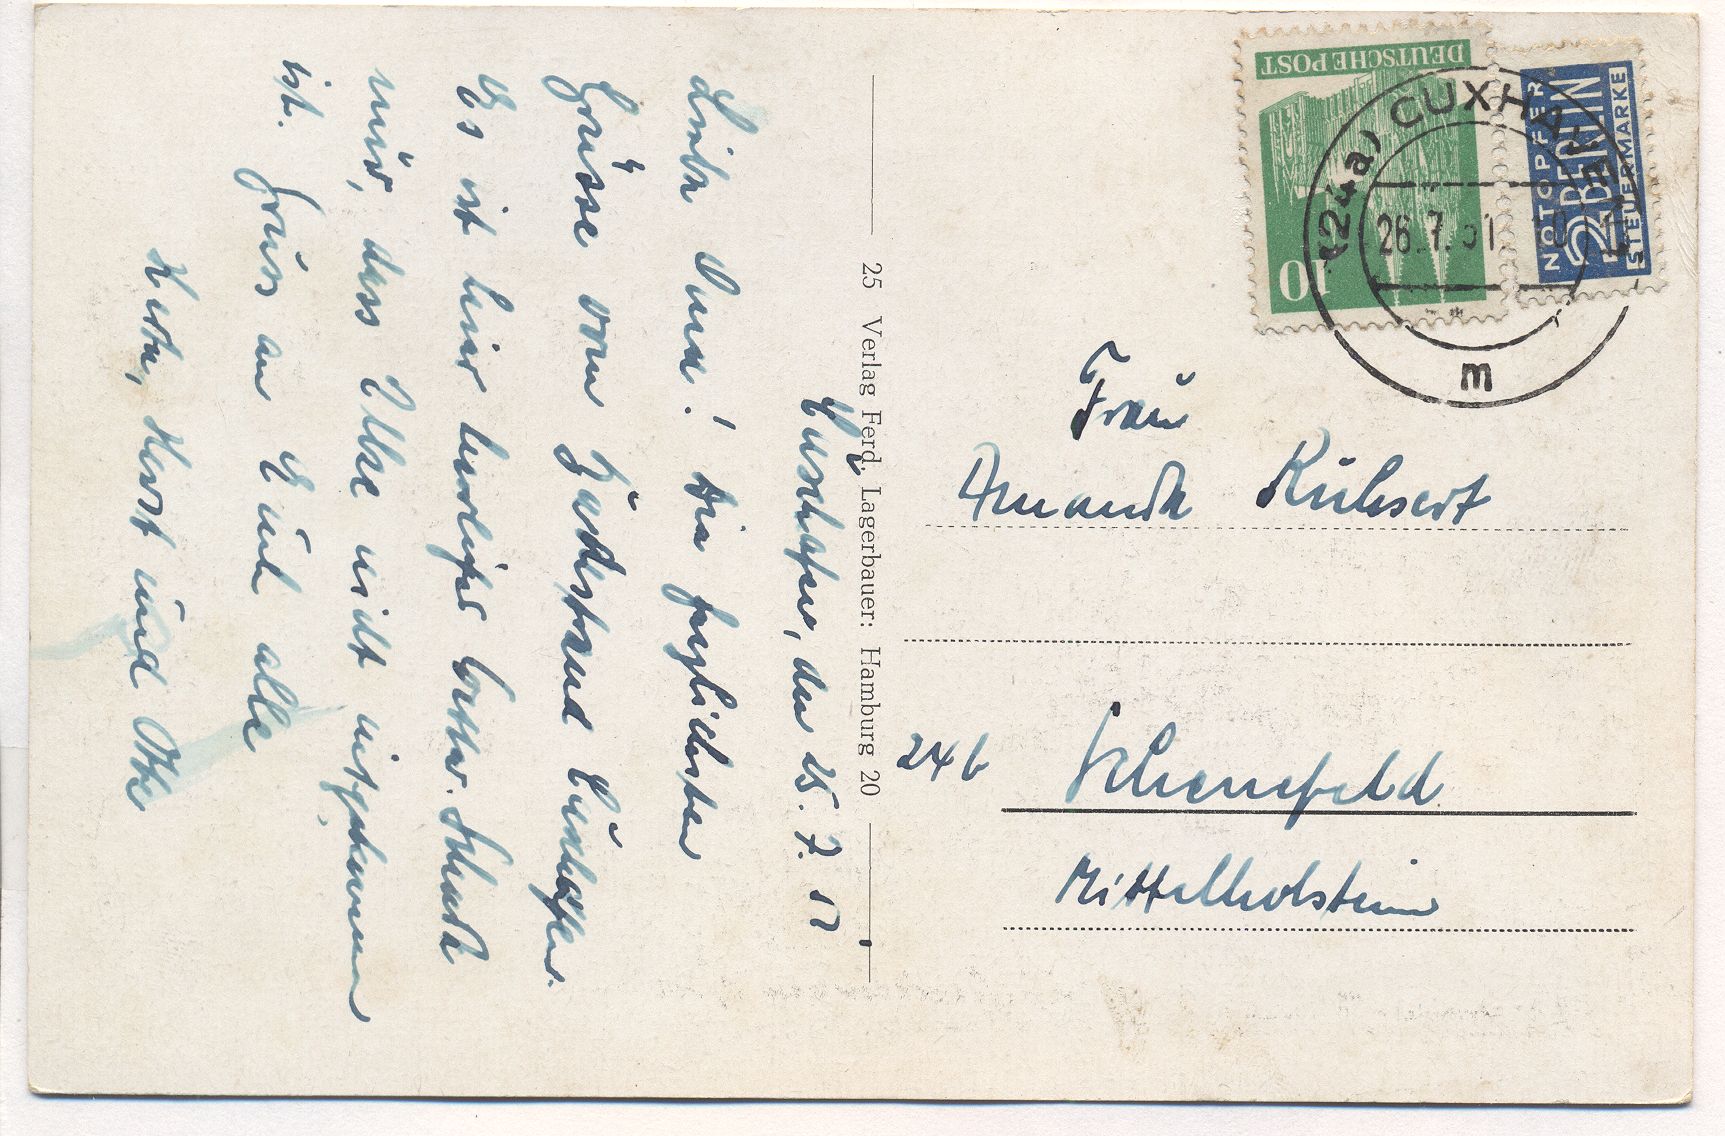 Cuxhafen, den 25. 7. 51
Liebe Oma! Die herzlichsten
Grüsse vom Südstrand Cuxhafen.
Es ist hier herrliches Wetter. Schade
nur, dass Ilse nicht mitgekommen
ist. Gruss an Euch alle
Horst und
25 Verlag Ferd. Lagerbauer: Hamburg 20
DEUTSCHE POST
10
NOTOPFER
2 BERLIN
STEUERMARKE
(24a) CUXHAVEN
26.7.51
m
Frau
Amanda
24b Schenefeld
Mittelholstein